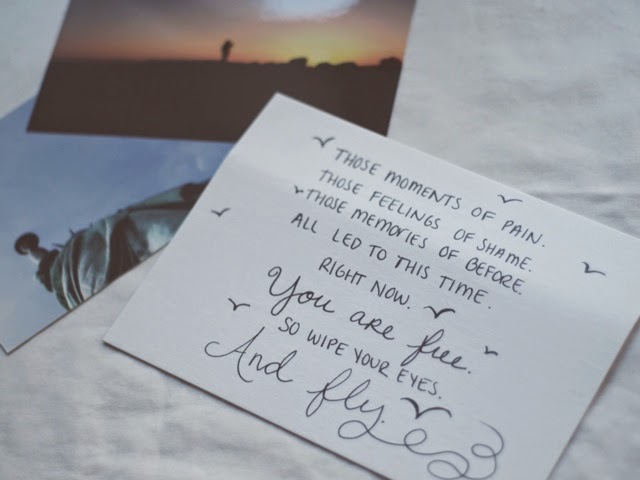 THOSE MOMENTS OF PAIN.
THOSE FEELINGS OF SHAME.
THOSE MEMORIES OF BEFORE.
ALL LED TO THIS TIME.
RIGHT NOW.
You are free.
SO WIPE YOUR EYES.
And fly.